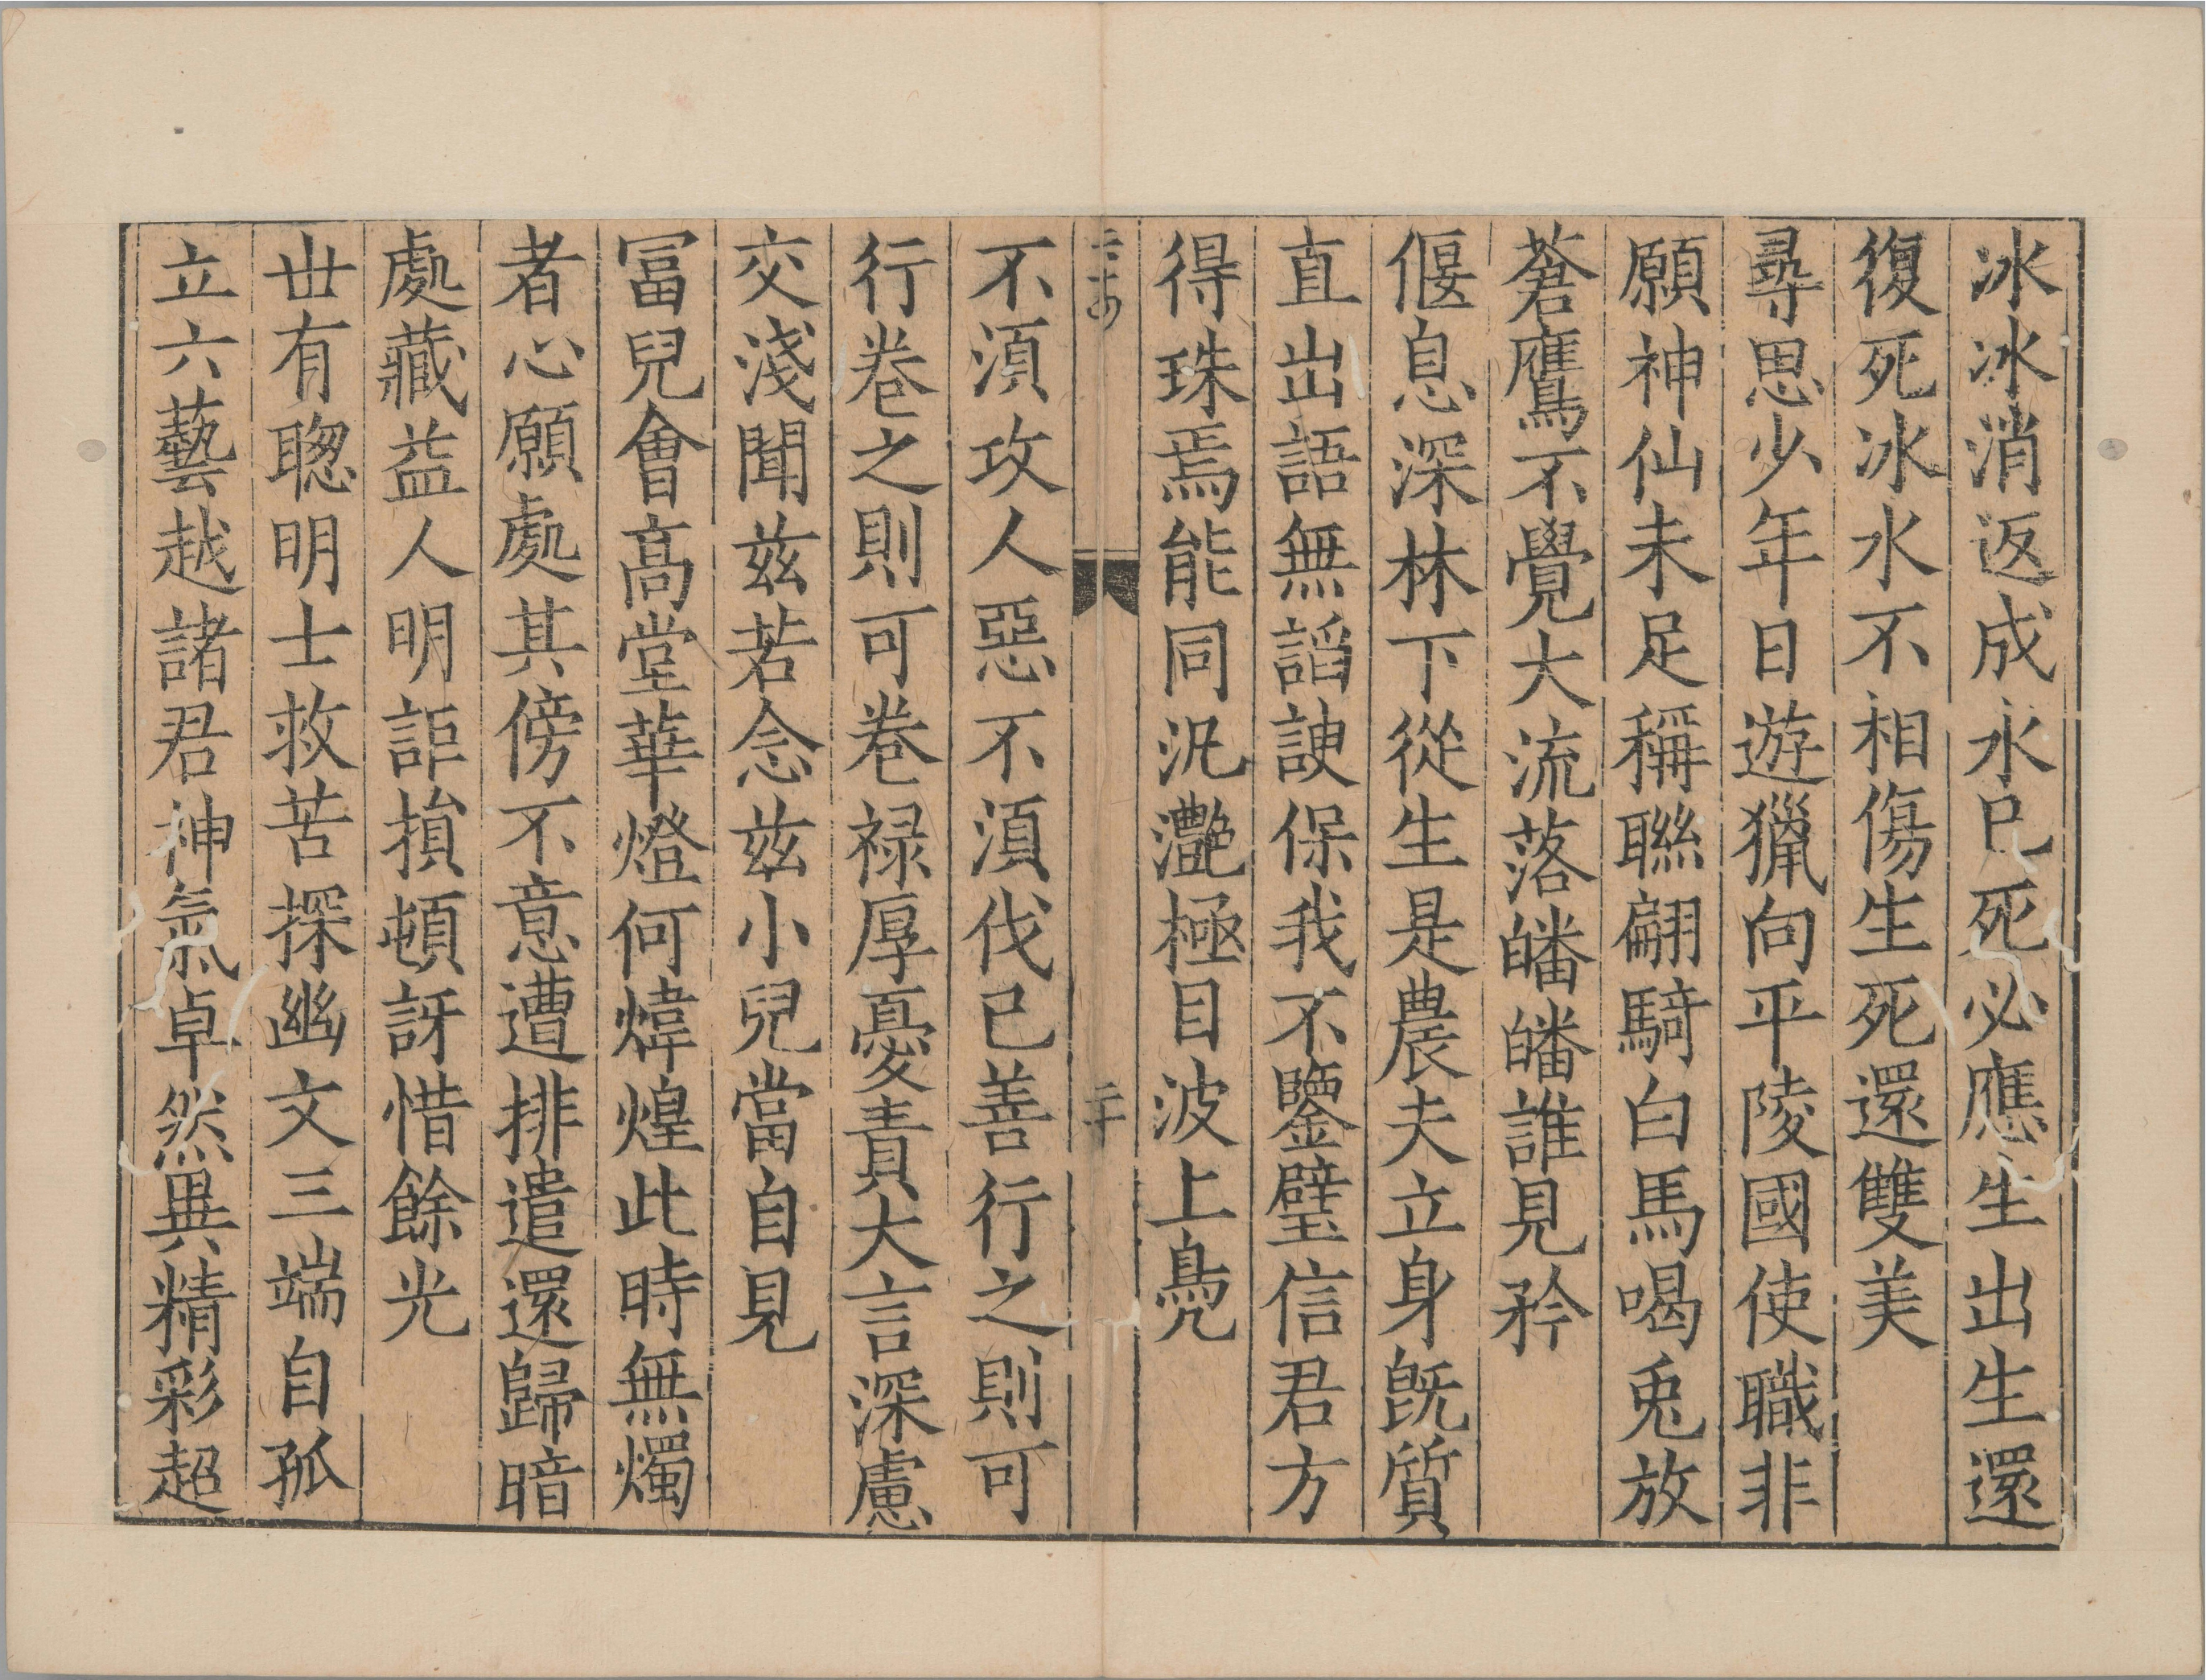 冰冰消返成水已死必應生出生還
復死冰水不相傷生死還雙美
尋思少年日遊獵向平陵國使職非
願神仙未足稱聯翩騎白馬喝兎放
蒼鷹不覺大流落皤皤誰見矜
偃息深林下從生是農夫立身旣質
直出語無謟諛保我不鑒璧信君方
得珠焉能同汎灩極目波上鳧
二十
不湏攻人惡不湏伐己善行之則可
行卷之則可卷禄厚憂責大言深慮
交淺聞兹若念兹小兒當自見
冨兒會髙堂華燈何煒煌此時無燭
者心願處其傍不意遭排遣還歸暗
處藏益人明詎損頓訝惜餘光
丗有聦明士救苦探幽文三端自孤
立六藝越諸君神氣卓然異精彩超